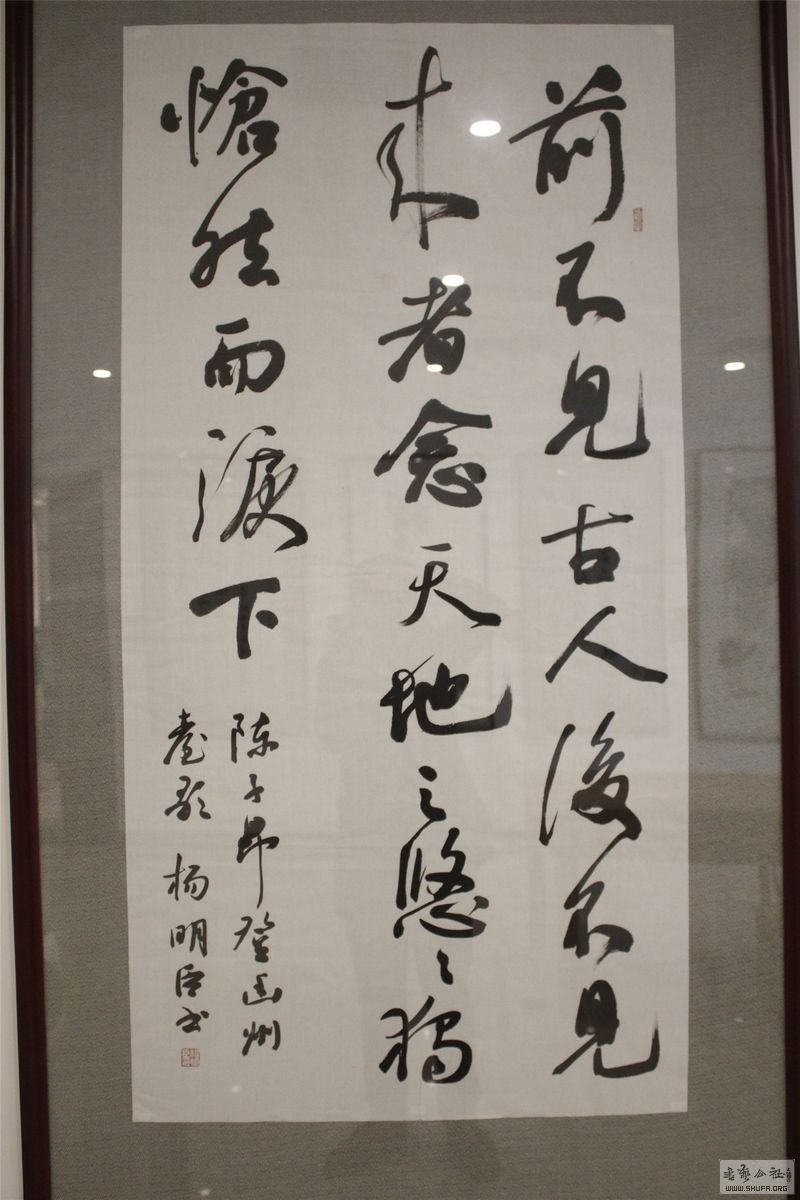 前不见古人後不見
来者念天地之悠々獨
愴然而淚下
陈子昂登幽州
臺歌 杨明臣书
书艺公社
WWW.SHUFA.ORG